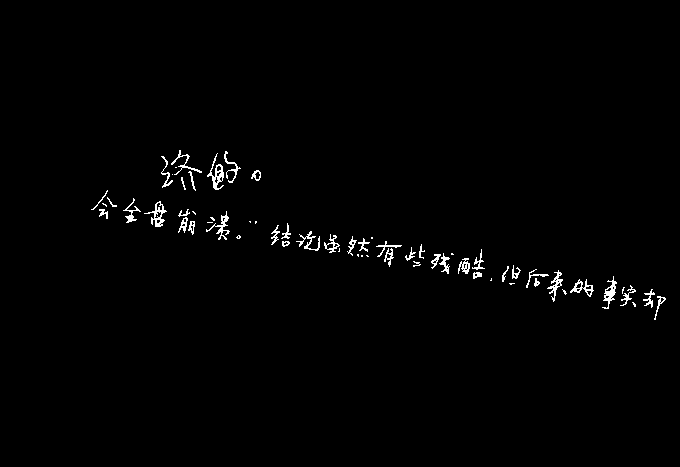 济的。
会全盘崩溃。"结论虽然有些残酷,但后来的事实却